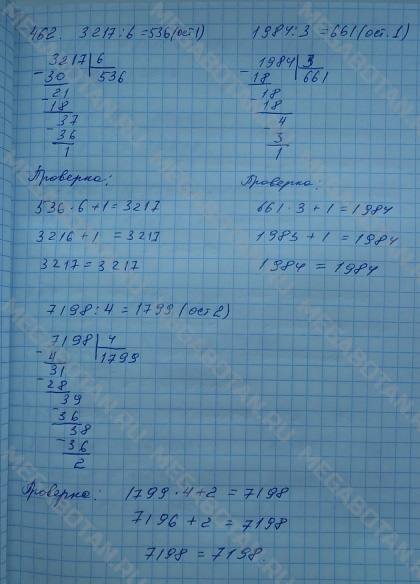 462. 3217:6=536(ост1)
3217|6
-30 536
-21
18
-37
-36
1
Проверка:
536·6+1=3217
3216+1=3217
3217=3217
1984:3=661(ост.1)
1984|3
-18 661
18
18
-4
3
1
Проверка:
661·3+1=1984
1983+1=1984
1984=1984
7198:4=1799(ост2)
7198|4
-4 1799
31
-28
39
-36
38
-36
2
Проверка: 1799·4+2=7198
7196+2=7198
7198=7198.
MEGABOTAN.RU